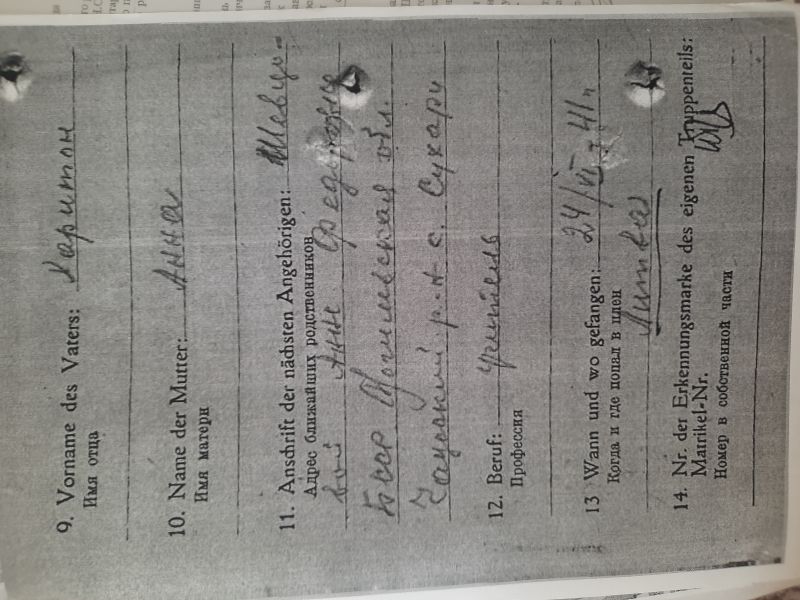 9. Vorname des Vaters: Харитон
Имя отца
10. Name der Mutter: Анна
Имя матери
11. Anschrift der nächsten Angehörigen: Шевцо-
Адрес ближайших родственников
вой Анне Федоровне
БССР Могилевская обл.
Чаусский р-н с. Сухари
12. Beruf: учитель
Профессия
13 Wann und wo gefangen: 24/VII-41г
Когда и где попал в плен
Литва
14. Nr. der Erkennungsmarke des eigenen Truppenteils:
Matrikel-Nr.
Номер в собственной части